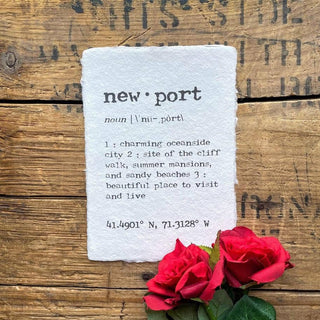 new · port
noun | \ˈnü-ˌpȯrt\
1 : charming oceanside
city 2 : site of the cliff
walk, summer mansions,
and sandy beaches 3 :
beautiful place to visit
and live
41.4901° N, 71.3128° W